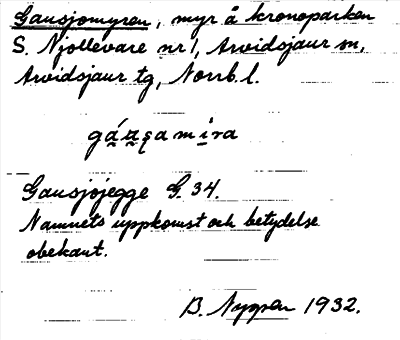 Gausjomyren, myr å kronoparken
S. Njallevare nr 1, Arvidsjaur sn,
Arvidsjaur tg, Norrb. l.
Gausjojegge G. 34.
Namnets uppkomst och betydelse
obekant.
B. Nygren 1932.